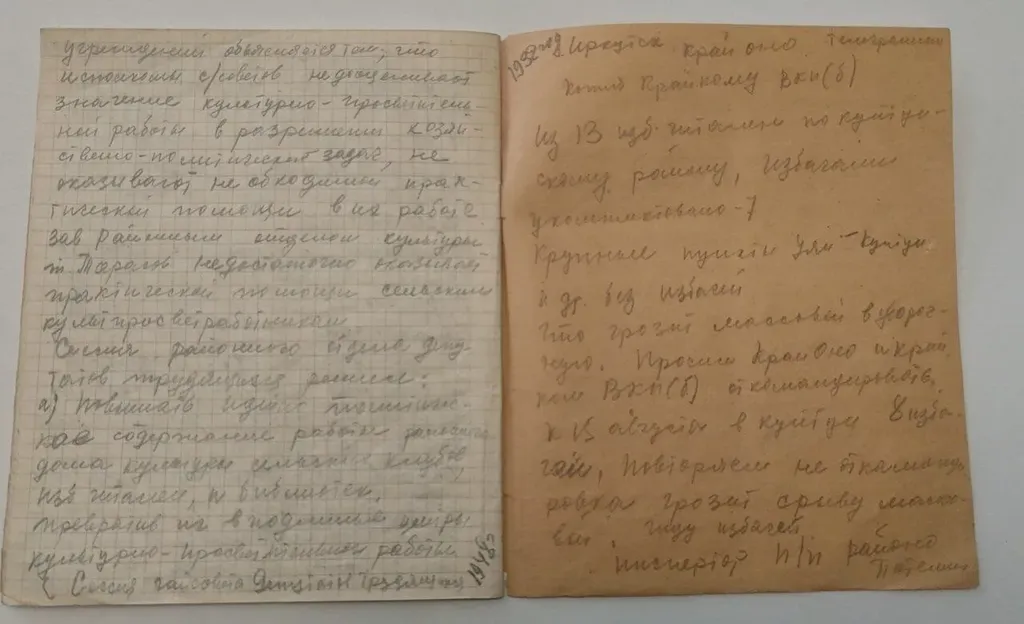 учреждений объясняется тем, что
исполкомы с/советов недооценивают
значение культурно-просвітитель-
ной работы в разрешении хозяй-
ствено-политической задач, не
оказывают необходимой прак-
тической помощи в их работе
Зав районным отделом культуры
т Тарасов недостаточно оказывает
практической помощи сельским
культпросветработникам
Сессия районного совета депу
татов трудящихся решила:
а) Повышать идейно политичес-
кое содержание работы районного
дома культуры сельских клубов,
изб читален, и библиотек,
превратив их в подлинные центры
культурно-просветительной работы
Сессия райсовета Депутатов Трудящихся
1948г
1932 год Иркутск Край оно Телеграмма
Копия Крайкому ВКП(б)
Из 13 изб-читален по Куйтун-
скому району, избачами
укомплектовано-7
Крупные пункты Уян Куйтун
и др. без избачей
Что грозит массовой в убороч-
ную. Просим КрайОно и край
ком ВКП(б) откомандировать
к 15 августа в Куйтун 8 изба-
чей, Повторяем не откоманди
ровка грозит срыву массо-
вой, жду избачей
инспектор П/П районо